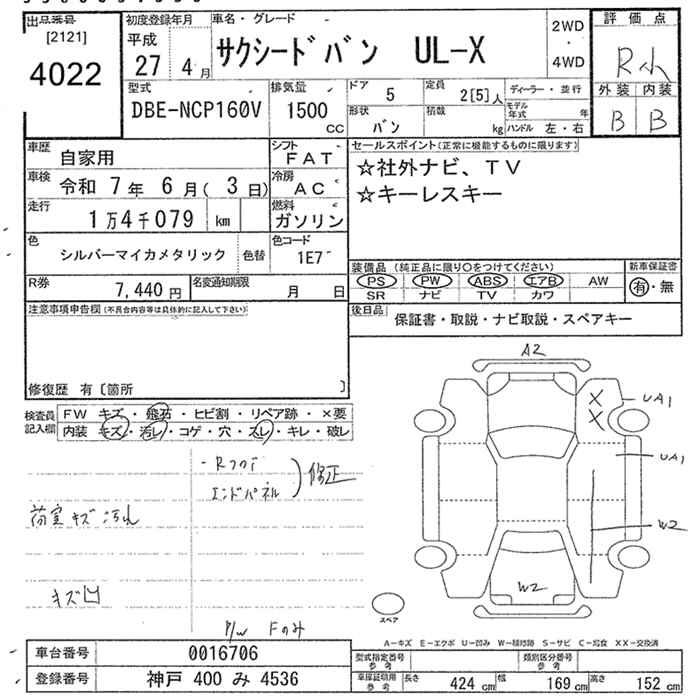 出品番号 初度登録年月 車名・グレード 2WD・4WD 評価点
[2121] 平成 サクシードバン UL-X R
4022 27 4月 外装 内装
型式 排気量 ドア 5 定員 2[5]人 ディーラー・並行 B B
DBE-NCP160V 1500 CC 形状 バン 積数 kg モデル年式 年
ハンドル 左・右
車歴 自家用 シフト FAT セールスポイント(正常に機能するものに限ります)
車検 令和 7年 6月( 3日) 冷房 AC ☆社外ナビ、TV
走行 1万4千079 km 燃料 ガソリン ☆キーレスキー
色 シルバーマイカメタリック 色替 色コード 1E7
装備品 (純正品に限り○をつけてください) 新車保証書
R券 7,440円 名変通知期限 月 日 PS PW ABS エアB AW 有・無
SR ナビ TV カワ
注意事項申告欄(不具合内容等は具体的に記入して下さい) 後日品 保証書・取説・ナビ取説・スペアキー
修復歴 有〔箇所 〕
A2
検査員記入欄 FW キズ・飛石・ヒビ割・リペア跡・×要
内装 キズ・汚レ・コゲ・穴・スレ・キレ・破レ
X UA1
X
・Rフロア
エンドパネル 修正
UA1
荷室キズ汚れ
W2
キズ凹
W2
P/W Fのみ スペア
A-キズ E-エクボ U-凹み W-補修跡 S-サビ C-腐食 XX-交換済
車台番号 0016706 型式指定番号 参考 類別区分番号 参考
登録番号 神戸 400 み 4536 車庫証明用 参考 長さ 424 cm 幅 169 cm 高さ 152 cm